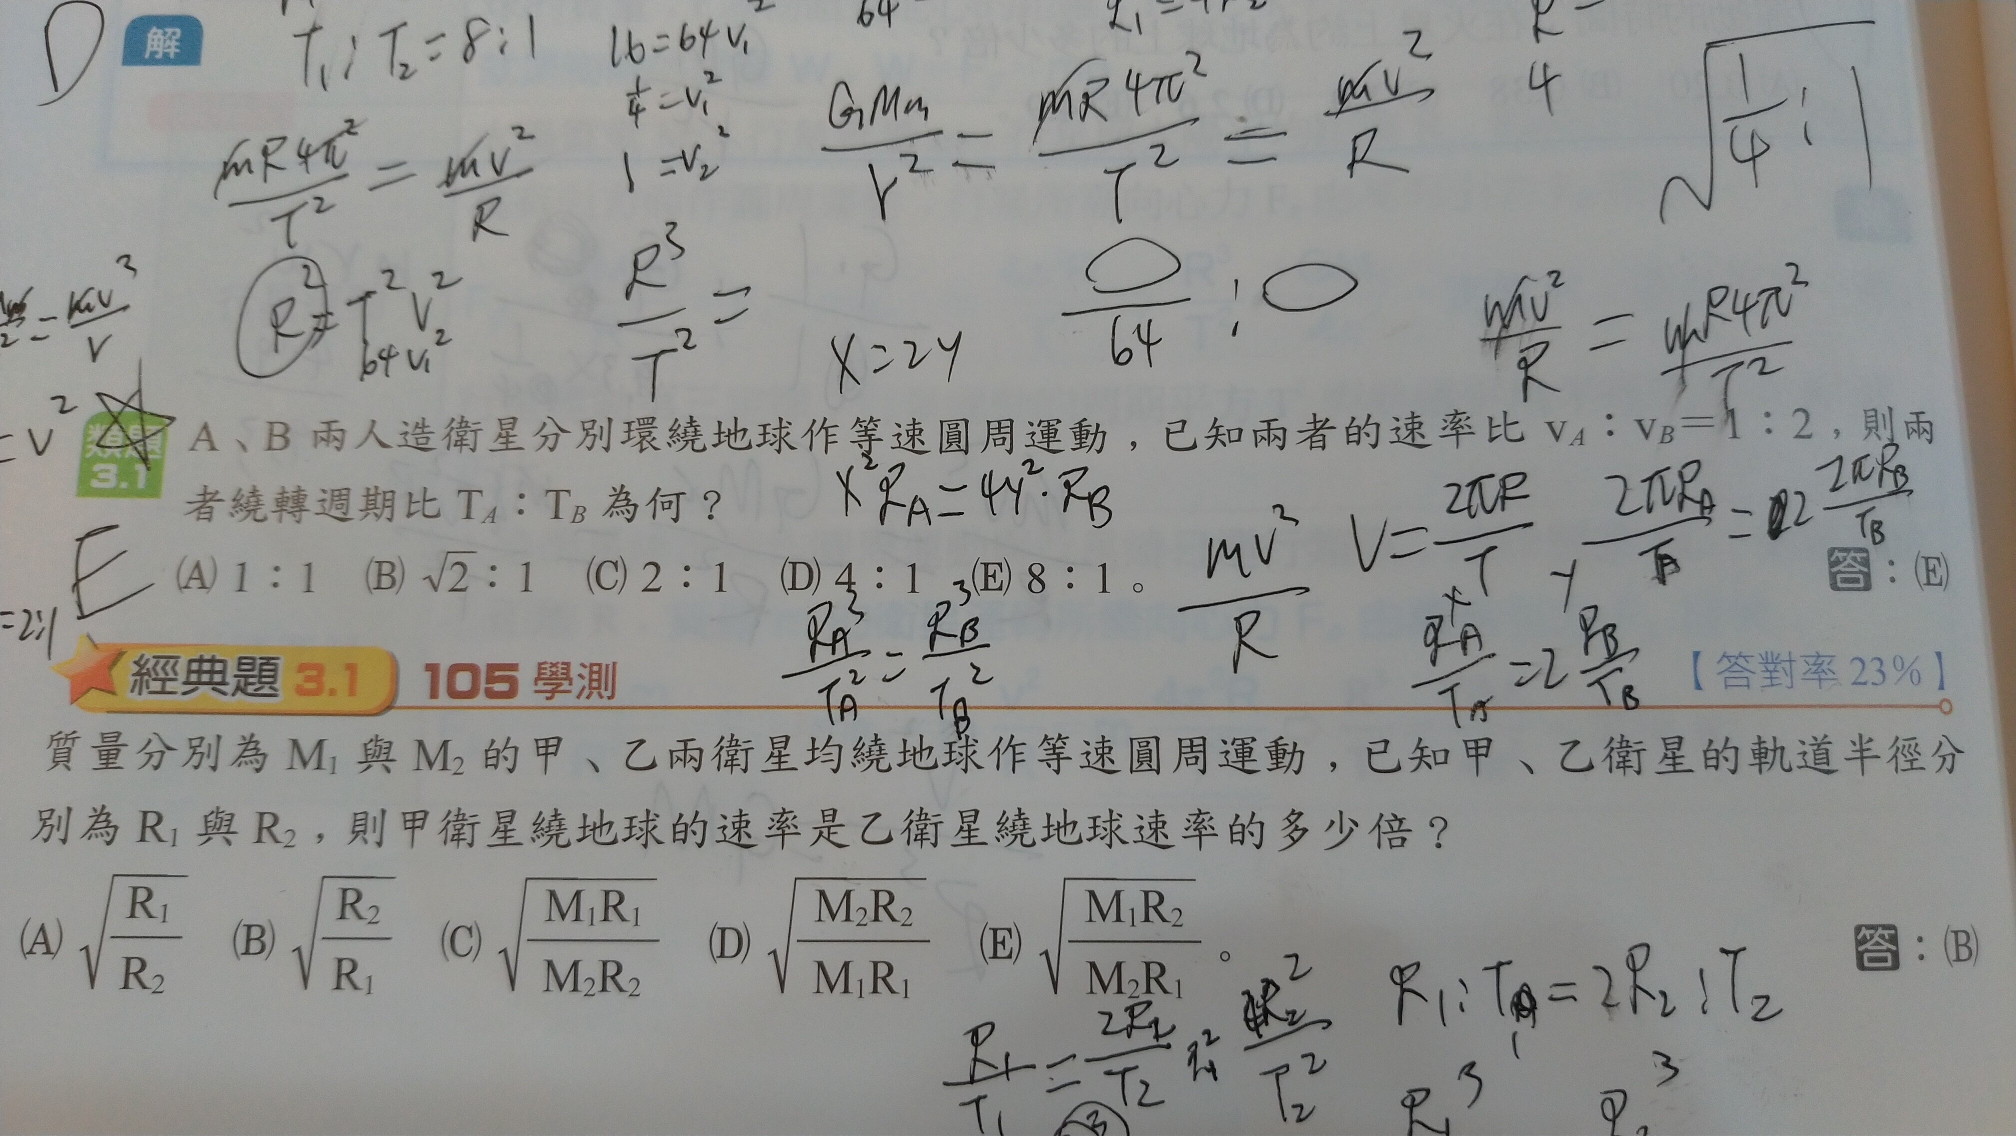 解
T₁ : T₂ = 8 : 1
16 = 64v₁²
1/4 = v₁²
1 = v₂²
GMm/r² = mR4π²/T² = mv²/R
4
√(1/4) : 1
mR4π²/T² = mv²/R
R² = T²v²
64v₁²
R³/T² =
X = 2Y
○/64 : ○
mv²/R = mR4π²/T²
= v²
類題 3.1 A、B 兩人造衛星分別環繞地球作等速圓周運動，已知兩者的速率比 v_A：v_B＝1：2，則兩
者繞轉週期比 T_A：T_B 為何？
X²R_A = 4Y²·R_B
mv²/R
V = 2πR/T
2πR_A/T_A = 2 2πR_B/T_B
E
(A) 1：1 (B) √2：1 (C) 2：1 (D) 4：1 (E) 8：1。 答：(E)
= 2:1
R_A³/T_A² = R_B³/T_B²
R_A/T_A = 2 R_B/T_B
經典題 3.1 105 學測 【答對率 23%】
質量分別為 M₁ 與 M₂ 的甲、乙兩衛星均繞地球作等速圓周運動，已知甲、乙衛星的軌道半徑分
別為 R₁ 與 R₂，則甲衛星繞地球的速率是乙衛星繞地球速率的多少倍？
(A) √(R₁/R₂) (B) √(R₂/R₁) (C) √(M₁R₁/M₂R₂) (D) √(M₂R₂/M₁R₁) (E) √(M₁R₂/M₂R₁)。 答：(B)
R₁ : T₁ = 2R₂ : T₂
R₁/T₁ = 2R₂/T₂